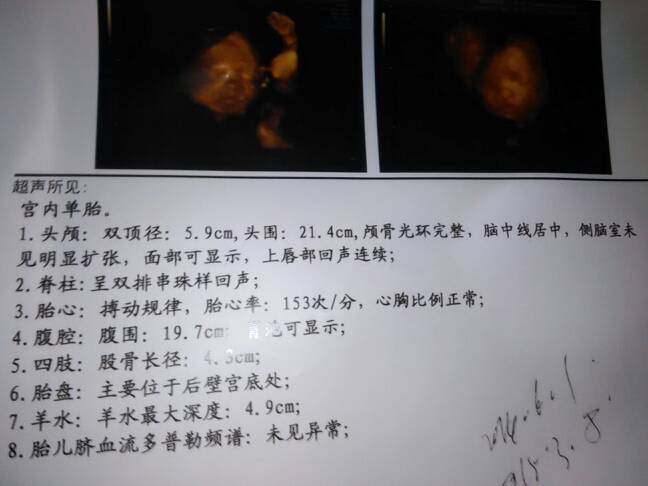 超声所见:
宫内单胎。
1.头颅: 双顶径: 5.9cm,头围: 21.4cm,颅骨光环完整, 脑中线居中, 侧脑室未
见明显扩张, 面部可显示, 上唇部回声连续;
2.脊柱:呈双排串珠样回声;
3.胎心: 搏动规律, 胎心率: 153次/分, 心胸比例正常;
4.腹腔: 腹围: 19.7cm; 可显示;
5.四肢: 股骨长径: 4.3cm;
6.胎盘: 主要位于后壁宫底处;
7.羊水: 羊水最大深度: 4.9cm;
8.胎儿脐血流多普勒频谱: 未见异常;